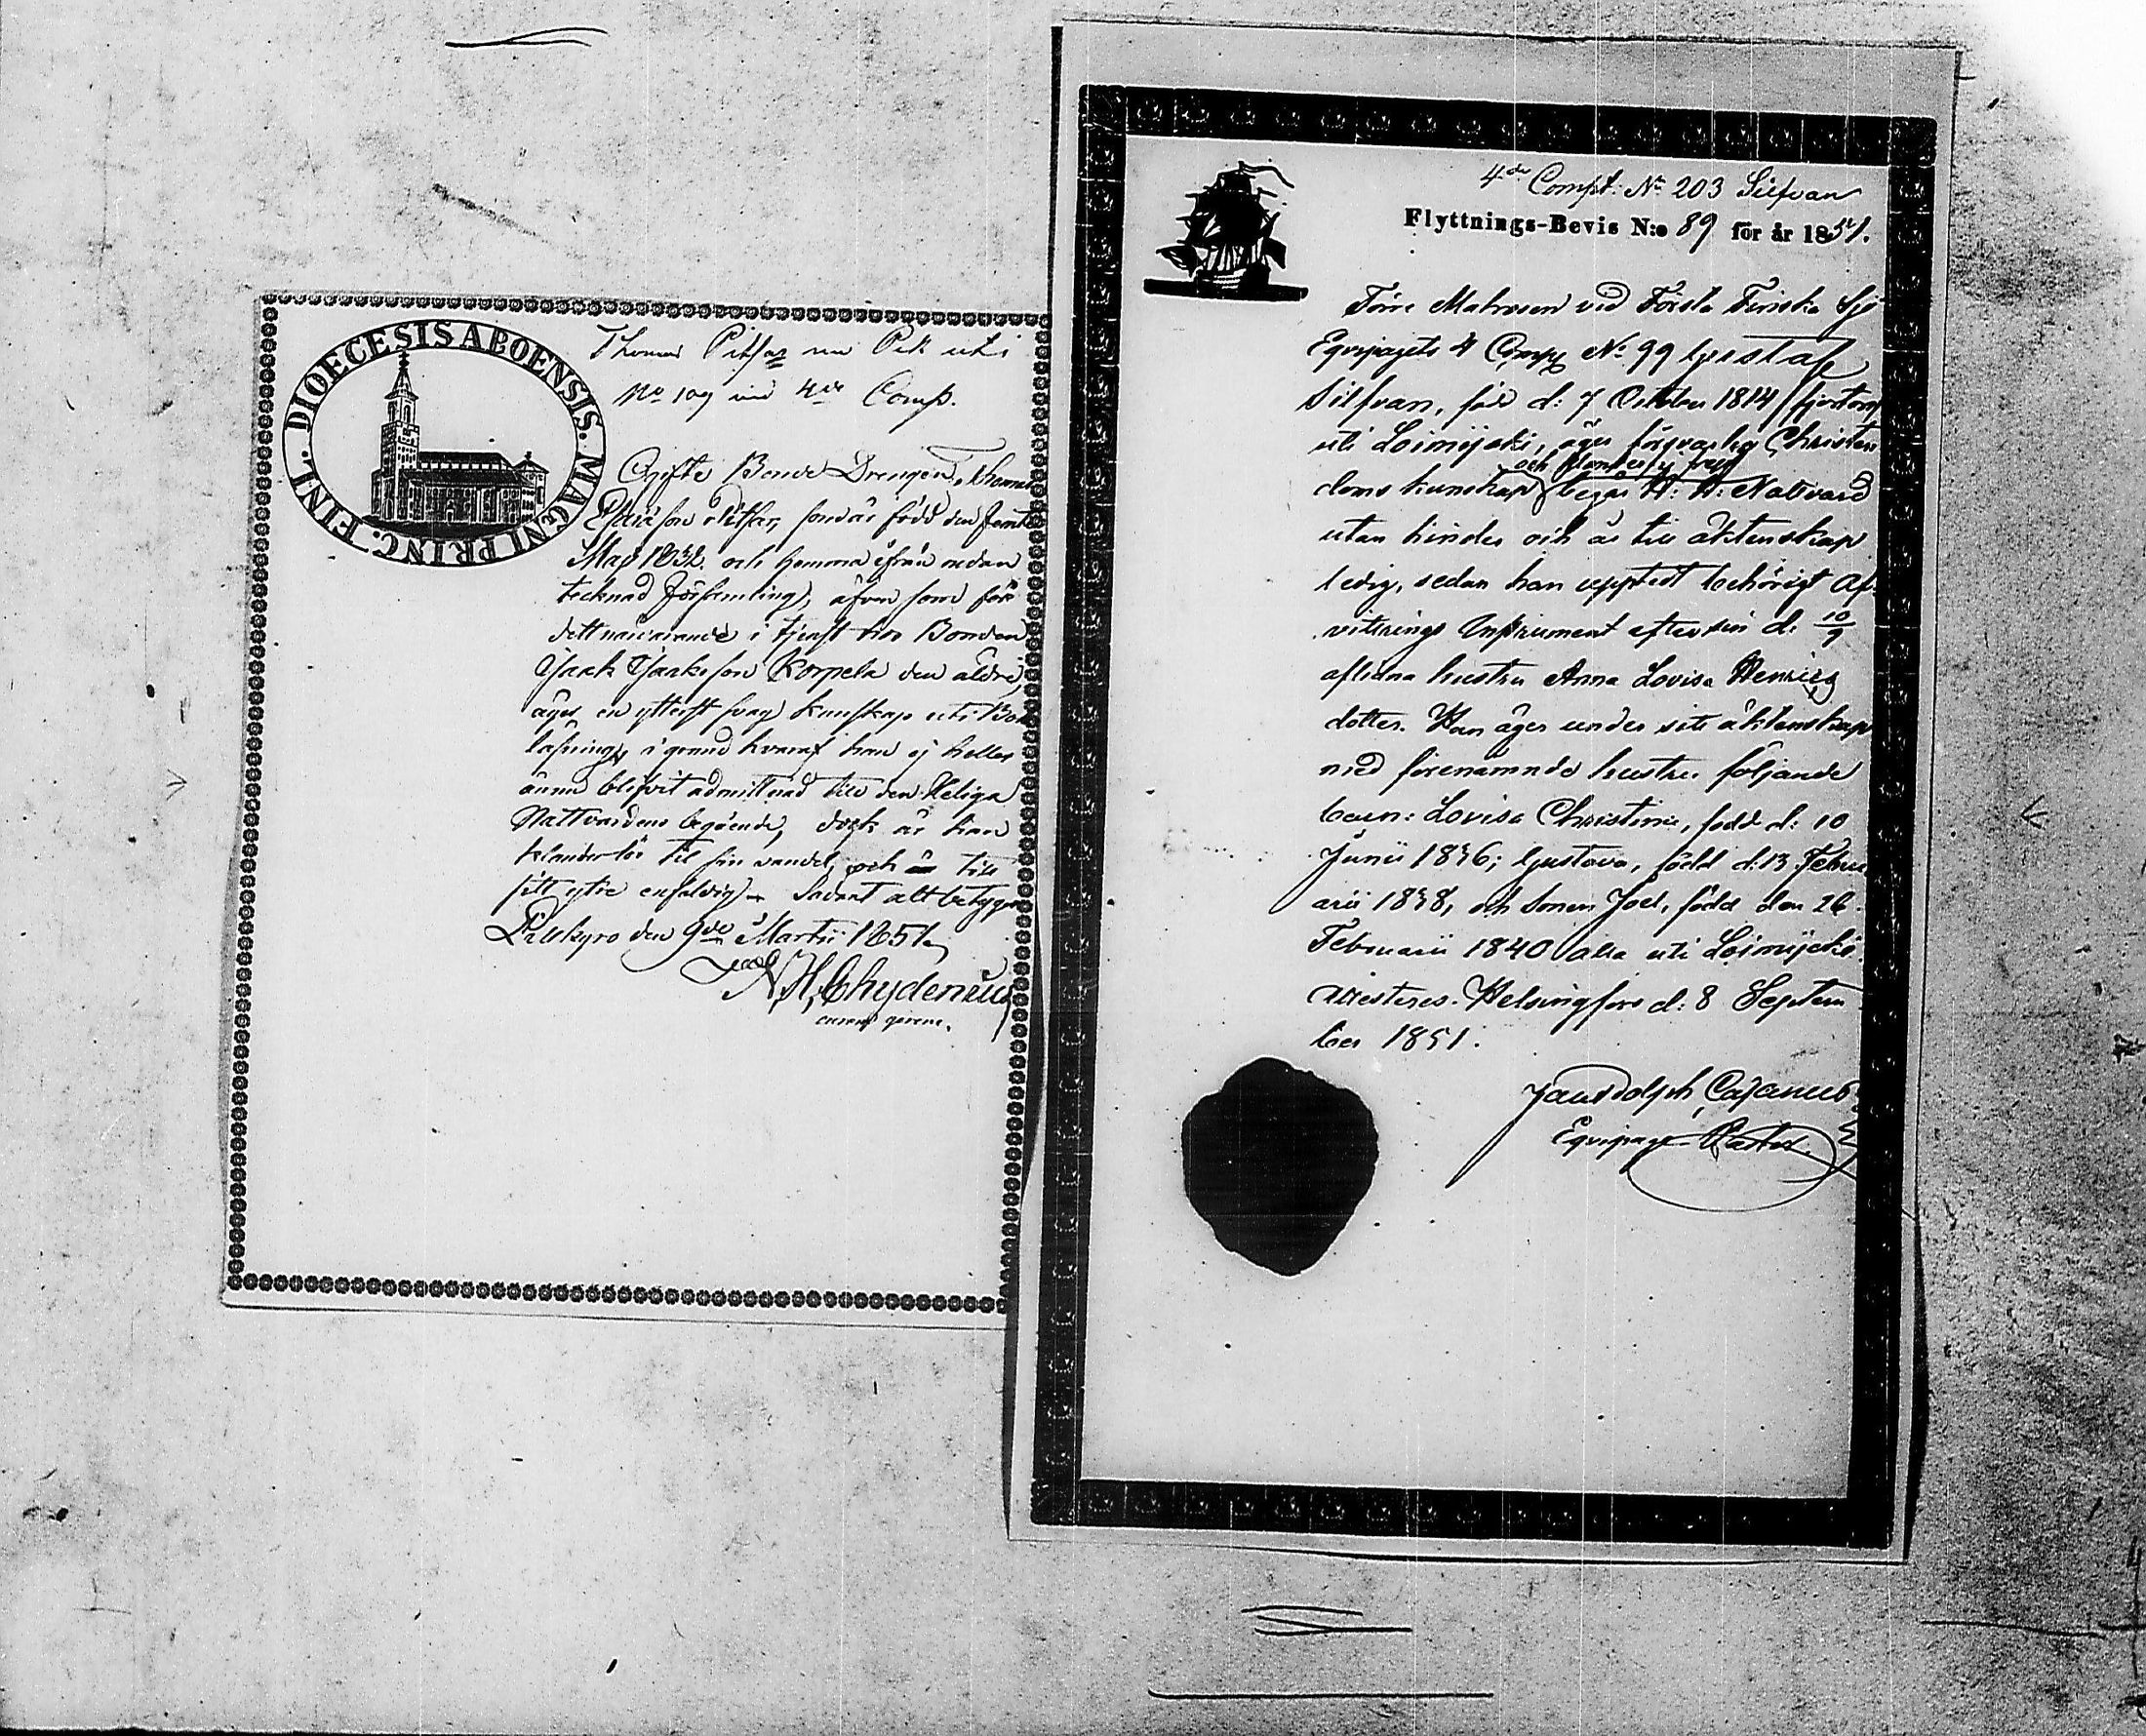 DIOECESIS ABOENSIS. MAGNI PRINC. FINL.
Thomas Pitfar nu Pik uti
No 109 vid 4de Comp.
Ogifte Bonde Drengen, Thomas
Esaiäson Pitfar, som är född den
Maj 1832. och hemma ifrån nedan
tecknad Församling, äfven som för
dett närvarande i tjenst hos Bonden
Isaak Isaaksson Korpela den äldre,
äger en ytterst svag kunskap uti Bok
läsning, i grund hvaraf han ej heller
ännu blifvit admitterad till den Heliga
Nattvardens begående, dock är han
klanderlös til sin vandel, och till
sitt yttre enfaldig. Sådant alt betygar
den 9de Martii 1851.
A. H. Chydenius
curam gerens.
4de Compt: No 203 Silfvan
Flyttnings-Bevis N:o 89 för år 1851.
Förre Matrosen vid Första Finska Sjö
Equipagets 4 Comp No 99 Gustaf
Silfvan, född d: 7 October 1814 / fjorton /
uti Loimijoki, äger försvarlig Christen
och klanderfri frejd
doms kunskap begår H: H: Nattvard
utan hinder och är till äktenskap
ledig, sedan han uppted behörigt Af-
vittrings Instrument efter sin d: 10/9
aflidna hustru Anna Lovisa Henrics
dotter. Han äger under sitt äktenskap
med förenämnde hustru följande
barn: Lovisa Christina, född d: 10
Junii 1836; Gustava, född d: 13 Febru
arii 1838, och Sonen Joel, född den 26
Februarii 1840 alla uti Loimijoki.
Attesteres. Helsingfors d: 8 Septem
ber 1851.
Cajanus
Equipage-Pastor.